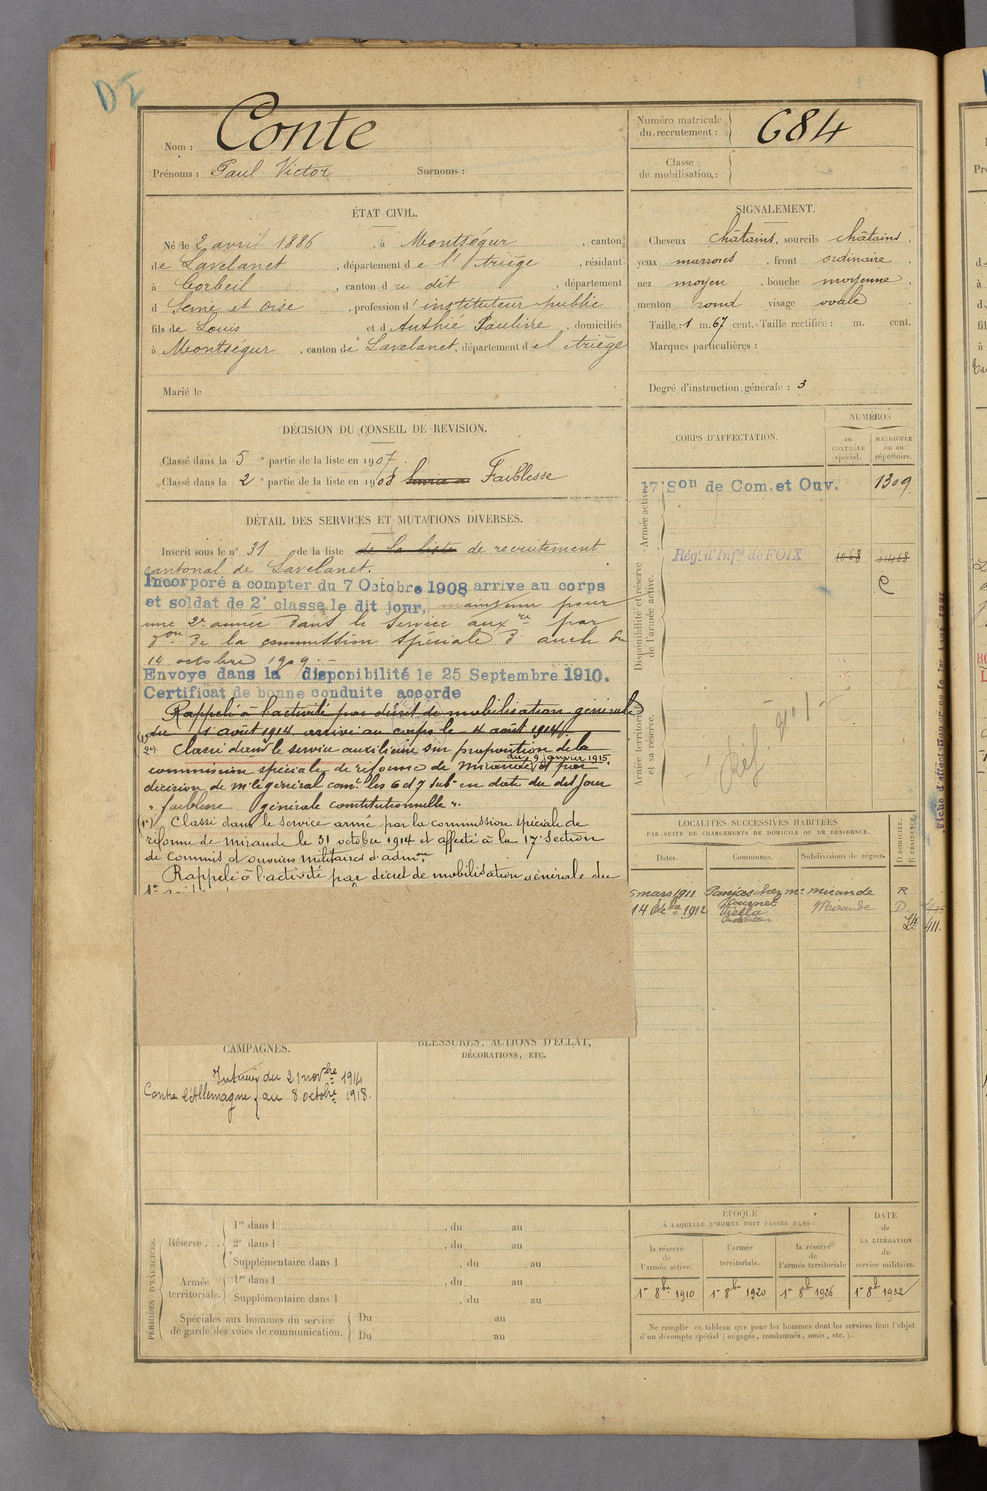 Conte
Nom :
Prénoms : Paul Victor Surnoms :
Numéro matricule du recrutement : 684
Classe de mobilisation :
ÉTAT CIVIL.
Né le 2 avril 1886, à Montségur, canton
de Lavelanet, département de l'Ariège, résidant
à Corbeil, canton du dit, département
d Seine et Oise, profession d'instituteur public
fils de Louis et d Authié Pauline, domiciliés
à Montségur, canton de Lavelanet, département de l'Ariège
Marié le
SIGNALEMENT.
Cheveux châtains, sourcils châtains,
yeux marrons, front ordinaire,
nez moyen, bouche moyenne,
menton rond visage ovale
Taille : 1 m. 67 cent. Taille rectifiée : m. cent.
Marques particulières :
Degré d'instruction générale : 3
DÉCISION DU CONSEIL DE REVISION.
Classé dans la 5e partie de la liste en 1907.
Classé dans la 2e partie de la liste en 1908 Faiblesse
CORPS D'AFFECTATION.
NUMÉROS
au CONTRÔLE spécial.
MATRICULE ou au répertoire.
Armée active.
17e Son de Com. et Ouv. 1309
Disponibilité et réserve de l'armée active.
Régt d'Infie de FOIX 1068
Armée territoriale et sa réserve.
DÉTAIL DES SERVICES ET MUTATIONS DIVERSES.
Inscrit sous le n° 31 de la liste de la liste de recrutement
cantonal de Lavelanet.
Incorporé a compter du 7 Octobre 1908 arrive au corps
et soldat de 2e classe le dit jour, maintenu pour
une 2e année dans le service auxre par
don de la commission spéciale d'auch du
14 octobre 1909.
Envoye dans la disponibilité le 25 Septembre 1910.
Certificat de bonne conduite accorde
Rappelé à l'activité par décret de mobilisation générale
du 1 août 1914 arrivé au corps le 4 août 1914.
(2°) Classé dans le service auxiliaire sur proposition de la
commission spéciale de réforme de Mirande du 9 janvier 1915. et par
décision de Mr le général comt les 6 et 7 subon en date du dit jour
" faiblesse générale constitutionnelle ".
(1°) Classé dans le service armé par la commission spéciale de
réforme de Mirande le 31 octobre 1914 et affecté à la 17e Section
de Commis et ouvriers militaires d'admon.
Rappelé à l'activité par décret de mobilisation générale du
LOCALITÉS SUCCESSIVES HABITÉES
PAR SUITE DE CHANGEMENTS DE DOMICILE OU DE RÉSIDENCE.
Dates. Communes. Subdivisions de région. D DOMICILE. R RÉSIDENCE.
5 mars 1911 Panjas chez Me Mirande R
14 1912 Viella Mirande D.
411.
CAMPAGNES.
Intérieur du 21 novbre 1914
Contre l'Allemagne au 8 octobre 1918.
BLESSURES, ACTIONS D'ÉCLAT,
DÉCORATIONS, ETC.
PÉRIODES D'EXERCICES.
Réserve. 1re dans l , du au
2e dans l , du au
Supplémentaire dans l , du au
Armée territoriale. 1re dans l , du au
Supplémentaire dans l , du au
Spéciales aux hommes du service de garde des voies de communication. Du au
Du au
ÉPOQUE
À LAQUELLE L'HOMME DOIT PASSER DANS :
la réserve de l'armée active.
l'armée territoriale.
la réserve de l'armée territoriale
DATE de LA LIBÉRATION du service militaire.
1er 8bre 1910 1er 8bre 1920 1er 8bre 1926 1er 8bre 1932
Ne remplir ce tableau que pour les hommes dont les services font l'objet
d'un décompte spécial (engagés, condamnés, omis, etc.).